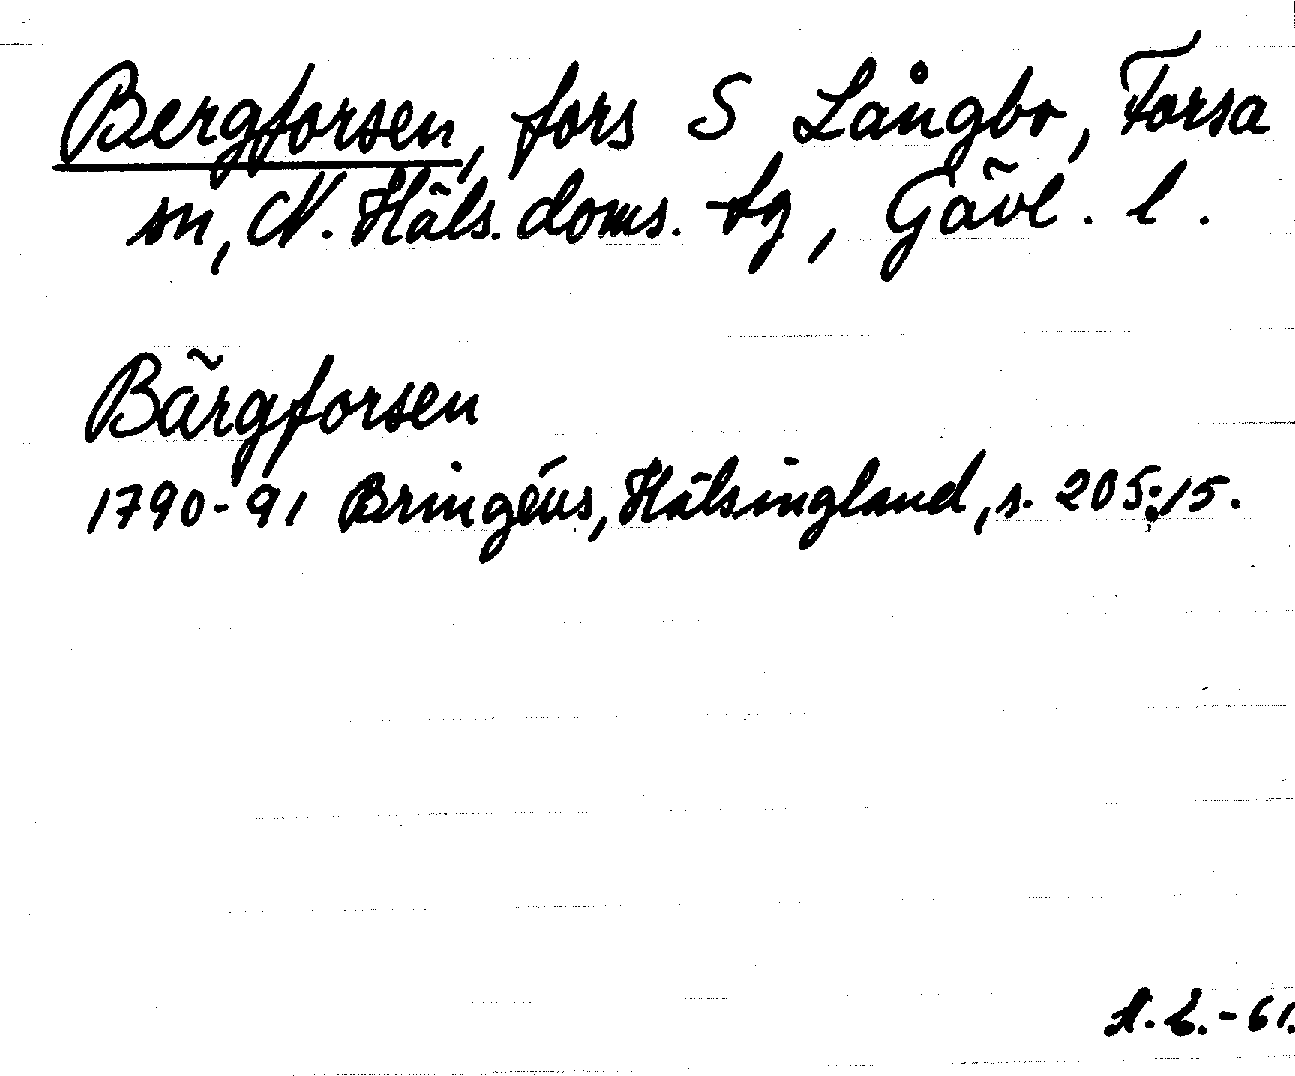 Bergforsen, fors S Långbo, Forsa
sn, N. Häls. doms. tg, Gävl. l.
Bärgforsen
1790-91 Bringéus, Hälsingland, s. 205:15.
A. L. -61.